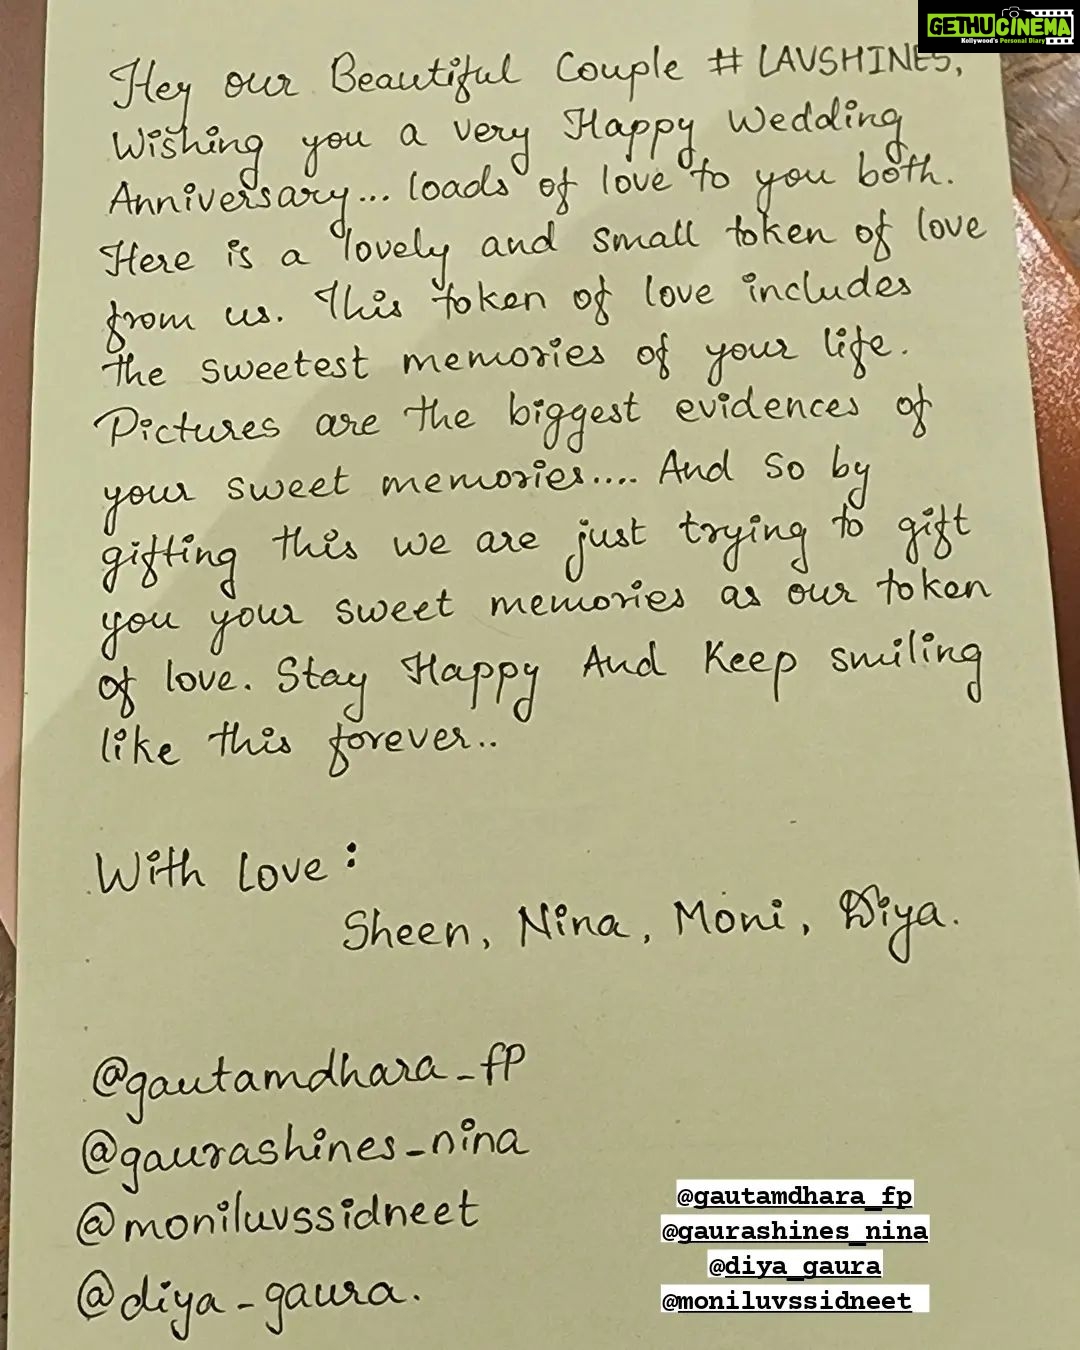 GETHUCINEMA
Kollywood's Personal Diary
Hey our Beautiful Couple # LAVSHINES,
Wishing you a very Happy Wedding
Anniversary... loads of love to you both.
Here is a lovely and small token of love
from us. This token of love includes
the sweetest memories of your life.
Pictures are the biggest evidences of
your sweet memories.... And so by
gifting this we are just trying to gift
you your sweet memories as our token
of love. Stay Happy And Keep smiling
like this forever..
With Love :
Sheen, Nina, Moni, Diya.
@gautamdhara_fp
@gaurashines_nina
@moniluvssidneet
@diya_gaura.
@gautamdhara_fp
@gaurashines_nina
@diya_gaura
@moniluvssidneet